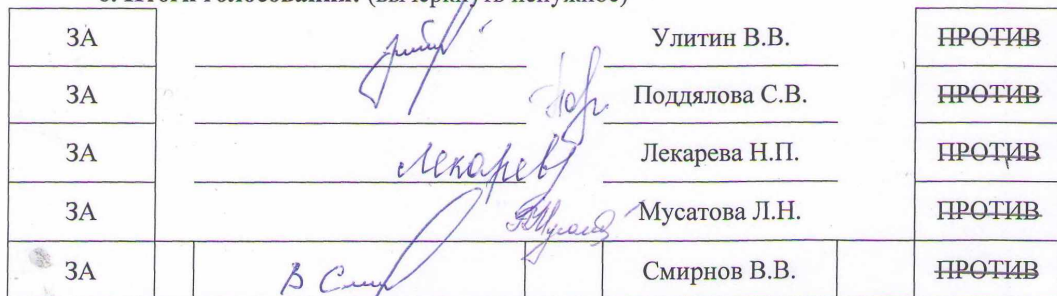 Итоги голосования: (вычеркнуть ненужное)
ЗА Улитин В.В. ПРОТИВ
ЗА Поддялова С.В. ПРОТИВ
ЗА Лекарева Н.П. ПРОТИВ
ЗА Мусатова Л.Н. ПРОТИВ
ЗА Смирнов В.В. ПРОТИВ